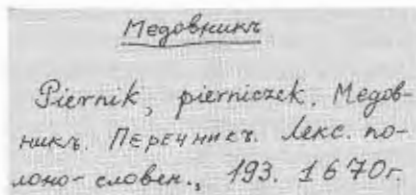 Медовникъ
Piernik, pierniczek. Медов-
никъ. Перечникъ. Лекс. по-
лоно-словен., 193. 1670г.